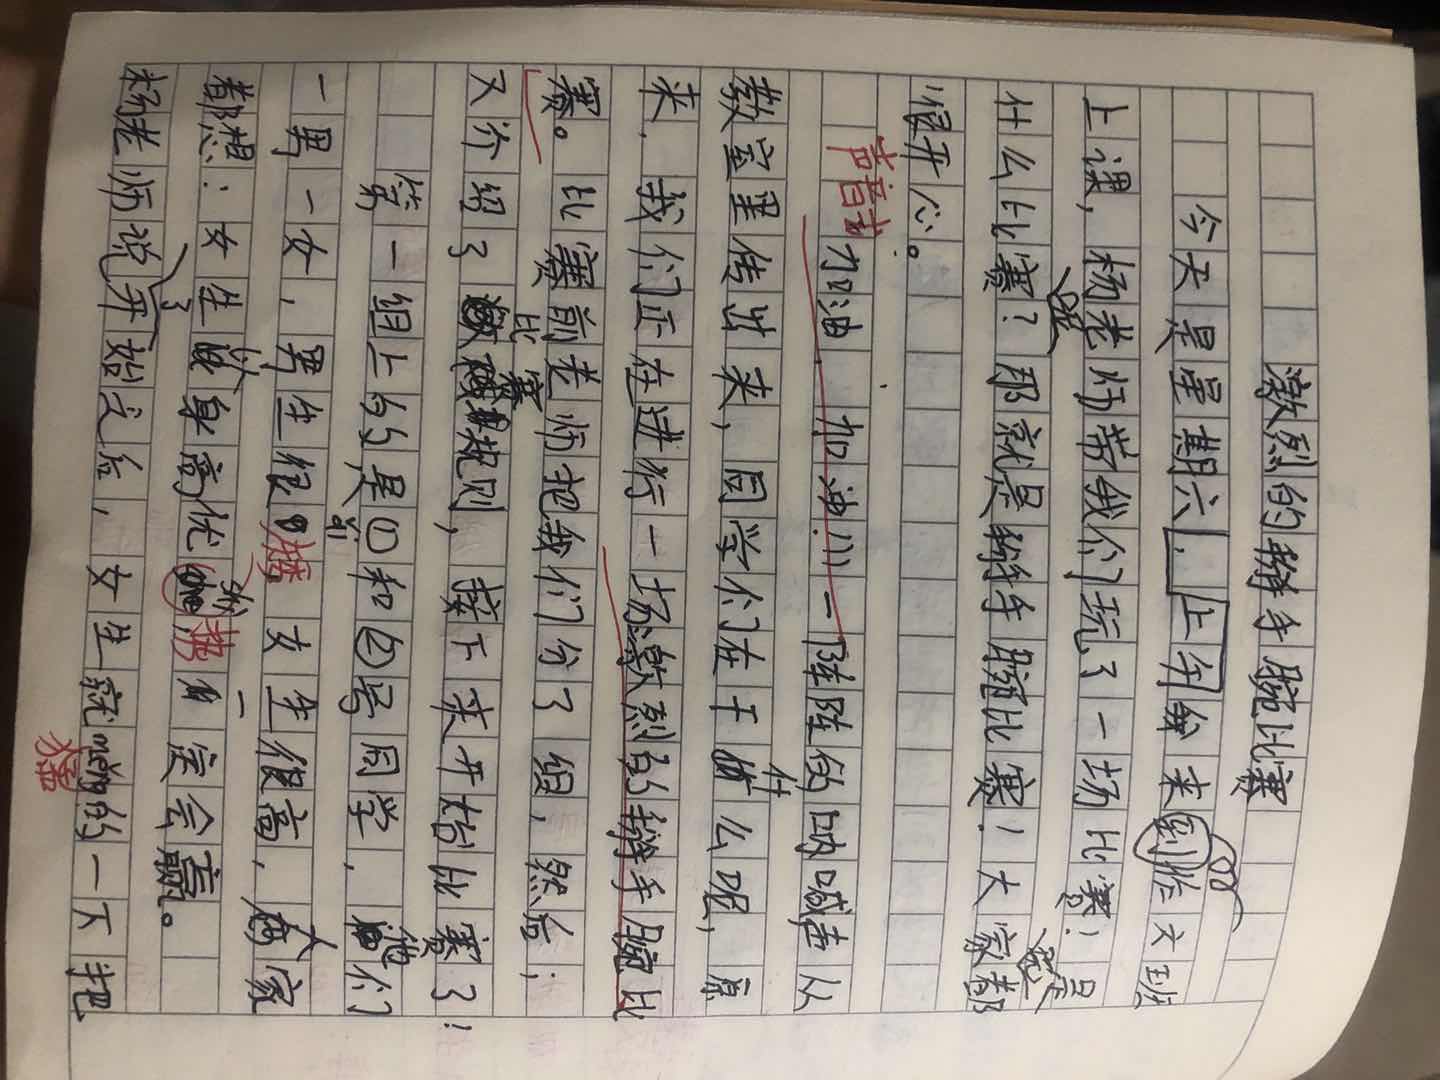 激烈的掰手腕比赛
今天是星期六,上午我来到作文班
上课,杨老师带我们玩了一场比赛!是
什么比赛?那就是掰手腕比赛!大家都
很开心。
声音大
加油,加油!!!一阵阵的呐喊声从
教室里传出来,同学们在干什么呢,原
来,我们正在进行一场激烈的掰手腕比
赛。比赛前老师把我们分了组,然后;
又介绍了比赛规则,接下来开始比赛了!
第一组上的是①和②号同学,他们
一男一女,男生很矮女生很高,大家
都想:女生的身高优势一定会赢。
杨老师说了开始之后,女生就的一下把